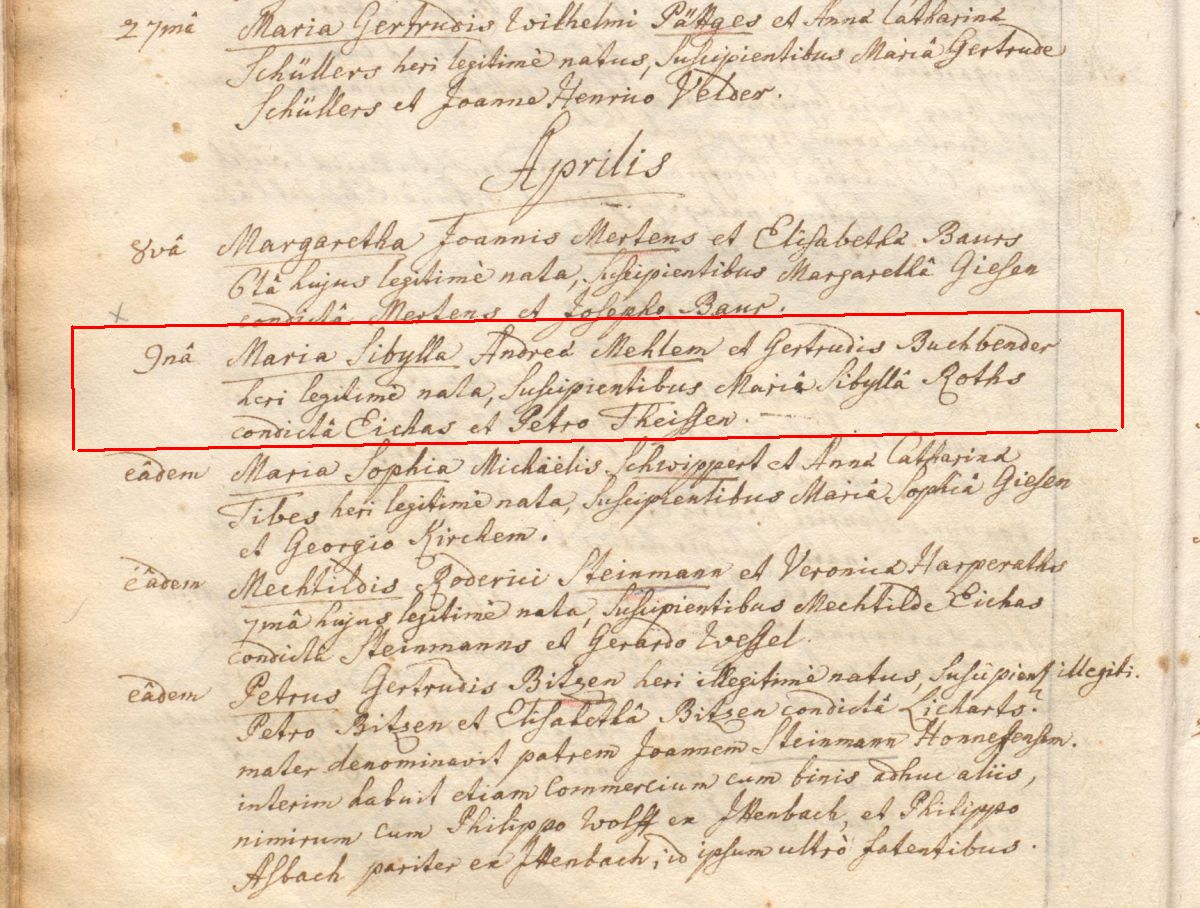 27mâ Maria Gertrudis Wilhelmi Pättges et Anna Catharina
Schüllers heri legitimè natus, Suscipientibus Mariâ Gertrude
Schüllers et Joanne Henrico Velder.
Aprilis
8vâ Margaretha Joannis Mertens et Elisabetha Baurs
6tâ hujus legitimè nata, Suscipientibus Margarethâ Giesen
condictâ Mertens et Josepho Baur.
9nâ Maria Sibylla Andreá Mehlem et Gertrudis Buchbender
heri legitimè nata, Suscipientibus Mariâ Sibyllâ Roths
condictâ Eichas et Petro Theissen.
eâdem Maria Sophia Michäelis Schwippert et Anna Catharina
Tibes heri legitimè nata, Suscipientibus Mariâ Sophiâ Giesen
et Georgio Kirchem.
eâdem Mechtildis Roderici Steinmann et Veronica Harperaths
7mâ hujus legitimè nata, Suscipientibus Mechtilde Eichas
condicta Steinmanns et Gerardo Wessel.
eâdem Petrus Gertrudis Bitzen heri illegitimè natus, illegiti.
Petro Bitzen et Elisabethâ Bitzen condictâ Licharts.
mater denominavit patrem Joannem Steinmann Honnefensem.
interim habuit etiam Commercium cum binis adhuc aliis,
nimirum cum Philippo Wolff ex Ittenbach, et Philippo
Asbach pariter ex Ittenbach, id ipsum ultrò fatentibus.